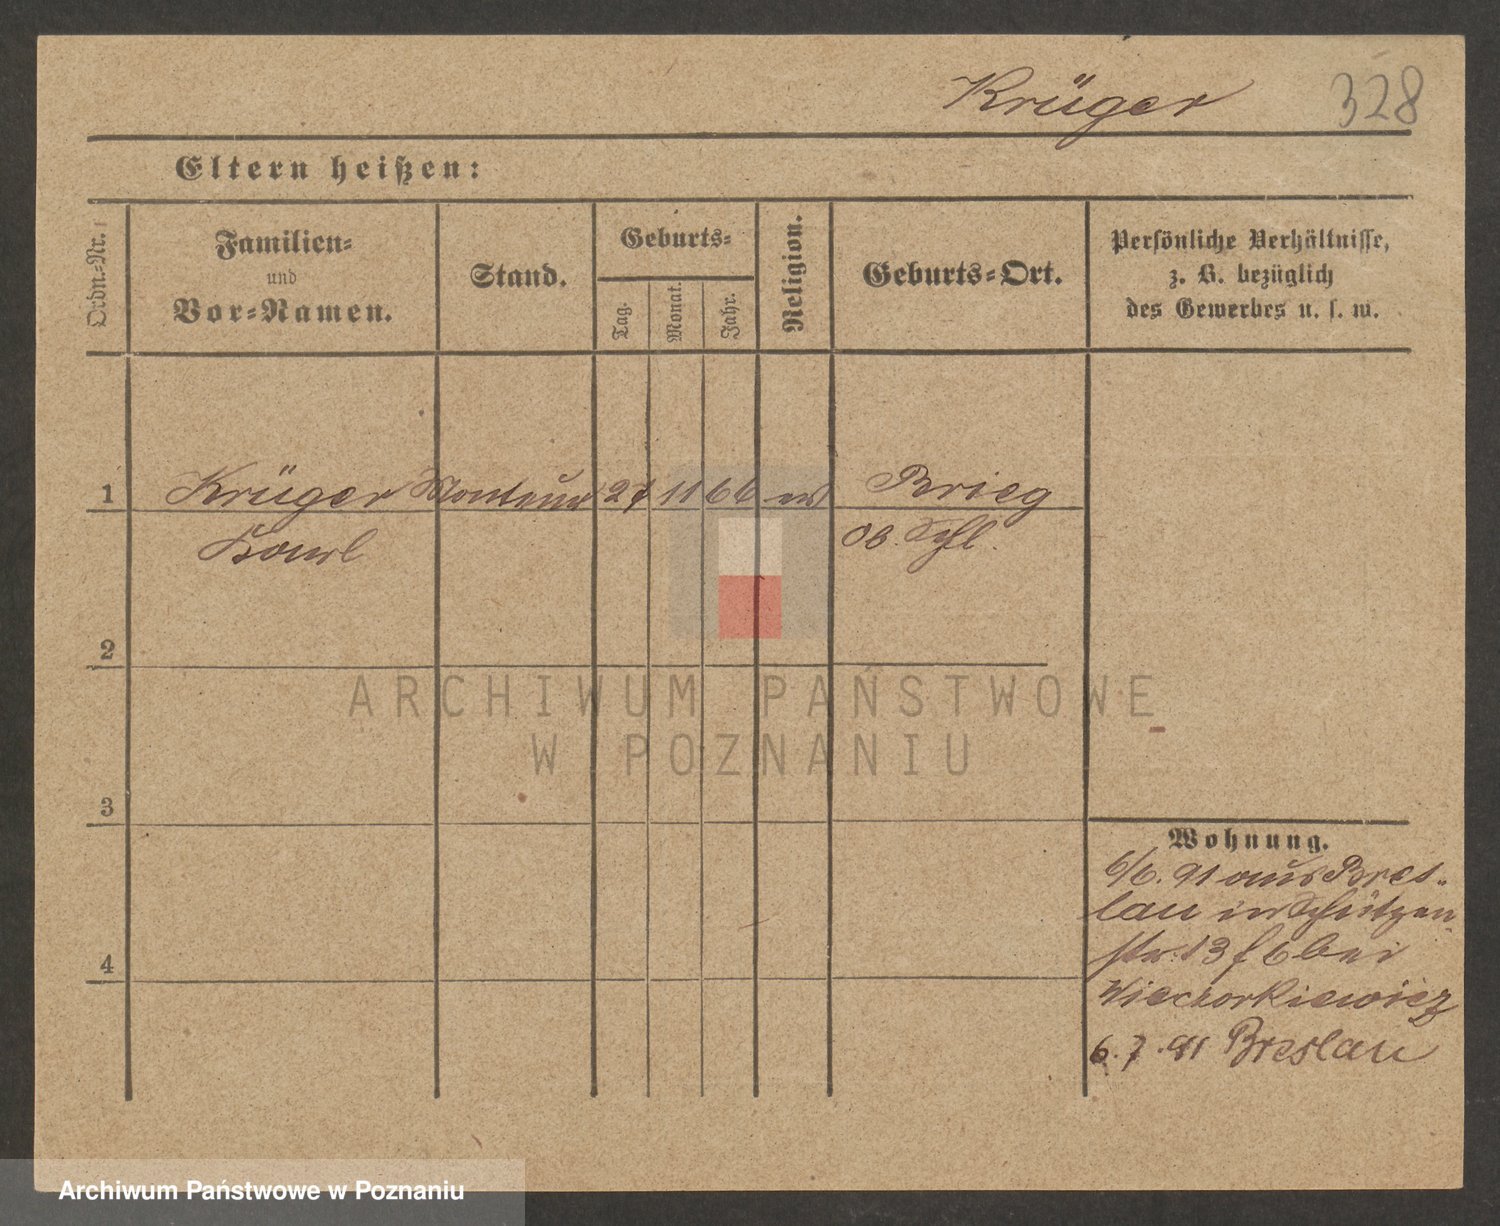 Krüger 328
Eltern heißen:
Ordn.=Nr.
Familien=
und
Vor=Namen.
Stand.
Geburts=
Tag.
Monat.
Jahr.
Religion.
Geburts=Ort.
Persönliche Verhältnisse,
z. B. bezüglich
des Gewerbes u. s. w.
1 Krüger Monteur 27 11 66 ev Brieg
Karl OB. Schl.
2
3
4
Wohnung.
6/6. 91 aus Bres-
lau in Schützen
str. 13 f 6 bei
Wieczorkiewicz
6. 7. 91 Breslau
ARCHIWUM PAŃSTWOWE
W POZNANIU
Archiwum Państwowe w Poznaniu